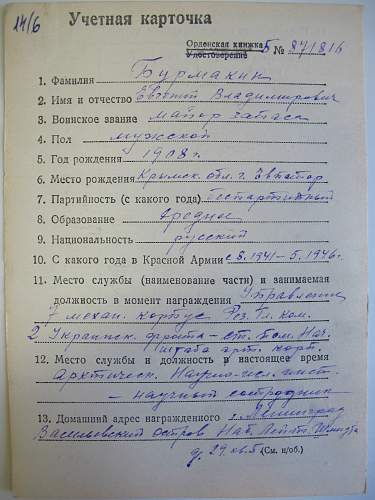 14/6
Учетная карточка
Орденская книжка Б № 871816
Удостоверение
1. Фамилия Бурмакин
2. Имя и отчество Евгений Владимирович
3. Воинское звание майор запаса
4. Пол мужской
5. Год рождения 1908 г.
6. Место рождения Крымск. обл. г. Евпатор.
7. Партийность (с какого года) беспартийный
8. Образование среднее
9. Национальность русский
10. С какого года в Красной Армии с 8.1941 – 5.1946 г.
11. Место службы (наименование части) и занимаемая
должность в момент награждения Управление
7 механ. корпус Рез. Гл. Ком.
2 Украинск. фронта – ст. Пом. Нач.
штаба арт. корп.
12. Место службы и должность в настоящее время
Арктическ. Научно-исл. инст.
– научный сотрудник
13. Домашний адрес награжденного г. Ленинград
Васильевский остров Наб. Лейт. Шмидта
д. 29 кв. 5 (См. н/об.)